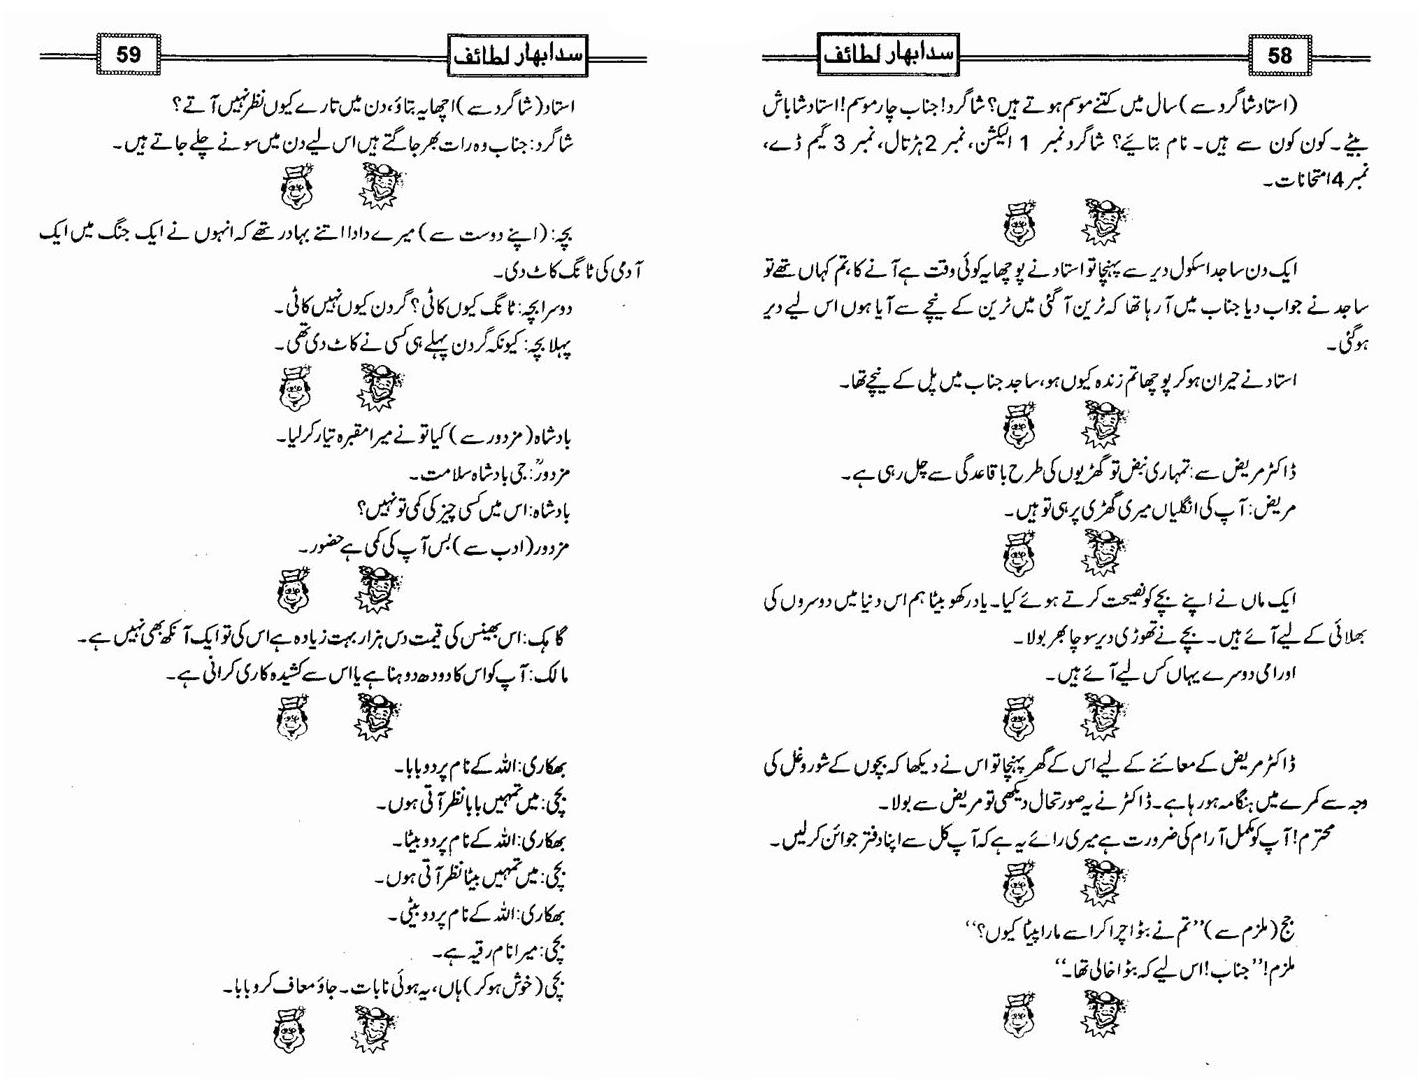 58
سدابهار لطائف
(استاد شاگرد سے) سال میں کتنے موسم ہوتے ہیں؟ شاگرد! جناب چار موسم! استاد شاباش
بیٹے۔ کون کون سے ہیں۔ نام بتائیے؟ شاگرد نمبر 1 الیکشن، نمبر 2 ہڑتال، نمبر 3 گیم ڈے،
نمبر 4 امتحانات۔
ایک دن ساجد اسکول دیر سے پہنچا تو استاد نے پوچھا یہ کوئی وقت ہے آنے کا، تم کہاں تھے تو
ساجد نے جواب دیا جناب میں آ رہا تھا کہ ٹرین آ گئی میں ٹرین کے نیچے سے آیا ہوں اس لیے دیر
ہو گئی۔
استاد نے حیران ہو کر پوچھا تم زندہ کیوں ہو، ساجد جناب میں پل کے نیچے تھا۔
ڈاکٹر مریض سے: تمہاری نبض تو گھڑیوں کی طرح باقاعدگی سے چل رہی ہے۔
مریض: آپ کی انگلیاں میری گھڑی پر ہی تو ہیں۔
ایک ماں نے اپنے بچے کو نصیحت کرتے ہوئے کہا۔ یاد رکھو بیٹا ہم اس دنیا میں دوسروں کی
بھلائی کے لیے آئے ہیں۔ بچے نے تھوڑی دیر سوچا پھر بولا۔
اور امی دوسرے یہاں کس لیے آئے ہیں۔
ڈاکٹر مریض کے معائنے کے لیے اس کے گھر پہنچا تو اس نے دیکھا کہ بچوں کے شور و غل کی
وجہ سے کمرے میں ہنگامہ ہو رہا ہے۔ ڈاکٹر نے یہ صورتحال دیکھی تو مریض سے بولا۔
محترم! آپ کو مکمل آرام کی ضرورت ہے میری رائے یہ ہے کہ آپ کل سے اپنا دفتر جوائن کر لیں۔
جج (ملزم سے) ”تم نے بٹوا چرا کر اسے مارا پیٹا کیوں؟“
ملزم! ”جناب! اس لیے کہ بٹوا خالی تھا۔“
سدابهار لطائف
59
استاد (شاگرد سے) اچھا یہ بتاؤ، دن میں تارے کیوں نظر نہیں آتے؟
شاگرد: جناب وہ رات بھر جاگتے ہیں اس لیے دن میں سونے چلے جاتے ہیں۔
بچہ: (اپنے دوست سے) میرے دادا اتنے بہادر تھے کہ انہوں نے ایک جنگ میں ایک
آدمی کی ٹانگ کاٹ دی۔
دوسرا بچہ: ٹانگ کیوں کاٹی؟ گردن کیوں نہیں کاٹی۔
پہلا بچہ: کیونکہ گردن پہلے ہی کسی نے کاٹ دی تھی۔
بادشاہ (مزدور سے) کیا تو نے میرا مقبرہ تیار کر لیا۔
مزدور: جی بادشاہ سلامت۔
بادشاہ: اس میں کسی چیز کی کمی تو نہیں؟
مزدور (ادب سے) بس آپ کی کمی ہے حضور۔
گاہک: اس بھینس کی قیمت دس ہزار بہت زیادہ ہے اس کی تو ایک آنکھ بھی نہیں ہے۔
مالک: آپ کو اس کا دودھ دوہنا ہے یا اس سے کشیدہ کاری کرانی ہے۔
بھکاری: اللہ کے نام پر دو بابا۔
بچی: میں تمہیں بابا نظر آتی ہوں۔
بھکاری: اللہ کے نام پر دو بیٹا۔
بچی: میں تمہیں بیٹا نظر آتی ہوں۔
بھکاری: اللہ کے نام پر دو بیٹی۔
بچی: میرا نام رقیہ ہے۔
بچی (خوش ہو کر) ہاں، یہ ہوئی نا بات۔ جاؤ معاف کرو بابا۔